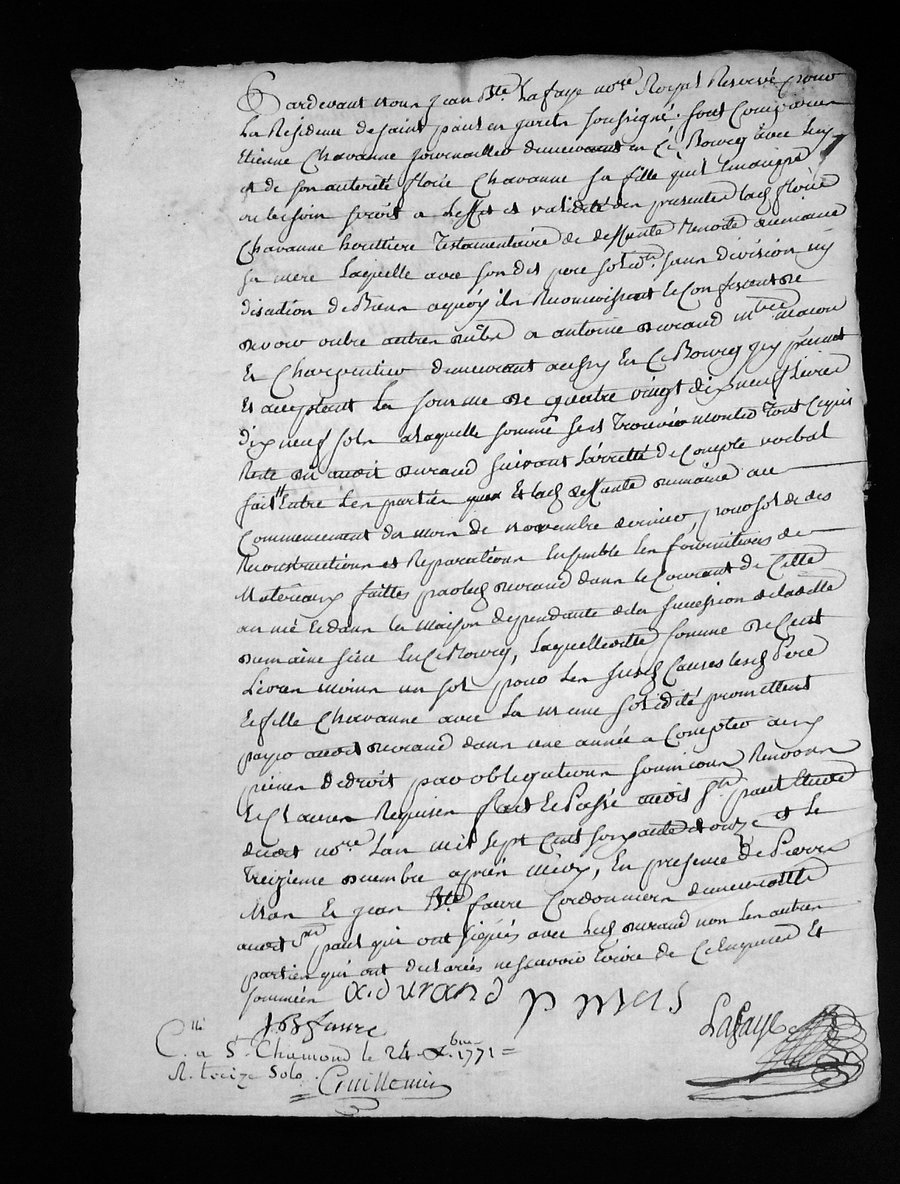 Pardevant nous jean Bte Lafaye nore Royal Reservé pour
La Residence de saint paul en jarets soussigné. font comparu
Etienne Chavanne journaillier demeurant en Ce Bourg avec luy
et de son autorité florie Chavanne sa fille quil Emancipe
ou besoin seroit a Leffet et validité des presentes lad florie
Chavanne heritiere Testamentaire de deffunte Benoite
sa mere Laquelle avec son dit pere solidt. sans division ny
discution de Biens aquoy ils Renoncissent Le Confessent de
devoir outre autres a antoine Durand mtre macon
Et Charpentier demeurant aussy En Ce Bourg icy present
Et acceptant La somme de quatre vingt dix neuf Livres
dix neuf sols a laquelle somme sest Trouvée monter Tout Ce quil
Reste du audit Durand suivant L'arretté de Compte verbal
fait Entre Les parties Et lad deffunte Dumaine au
Commencement du mois de novembre dernier, pour solde des
Reconstructions et Reparations Ensemble Les fournitures de
Materiaux faittes par led Durand dans le Courant de Cette
année Et dans la maison dependante de la succession de laditte
Dumaine size En Ce Bourg, Laquelle ditte somme de Cent
Livres moins un sol pour Les susd Causes lesd Pere
Et fille Chavanne avec La meme solidité promettent
payer audit Durand dans une année a Compter
peines de droit par obligations soumissions Renonon
Et Clauses Requises fait Et Passé audit St. paul Etude
dudit nore Lan mil sept Cent soixante et onze et le
Treizieme decembre après midy, En presence de Pierre
Mas Et jean Bte. faure Cordonniers demeurants
audit St paul qui ont signés avec Led Durand non Les autres
parties qui ont declarées ne scavoir Ecrire de Ce Enquises Et
sommées a. durand p mas
J B faure Lafaye
C.lle a St. Chamond le 24 Xbre 1771 =
R. treize Sols.
Guillemin